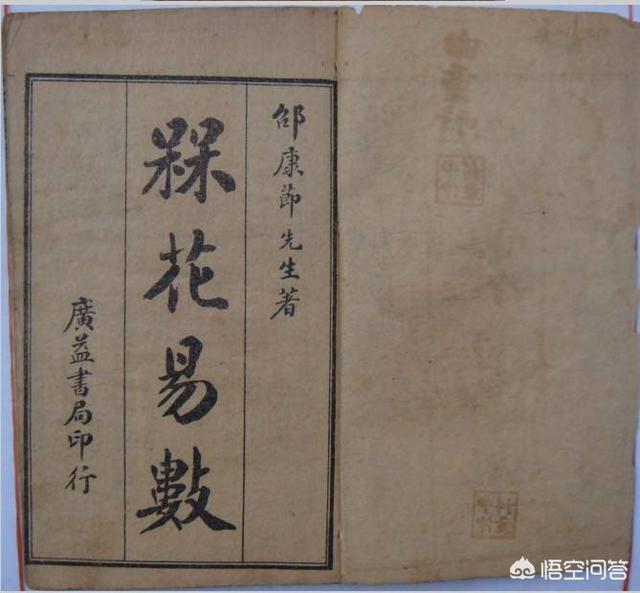 邵康節先生著
槑花易數
廣益書局印行
悟空问答